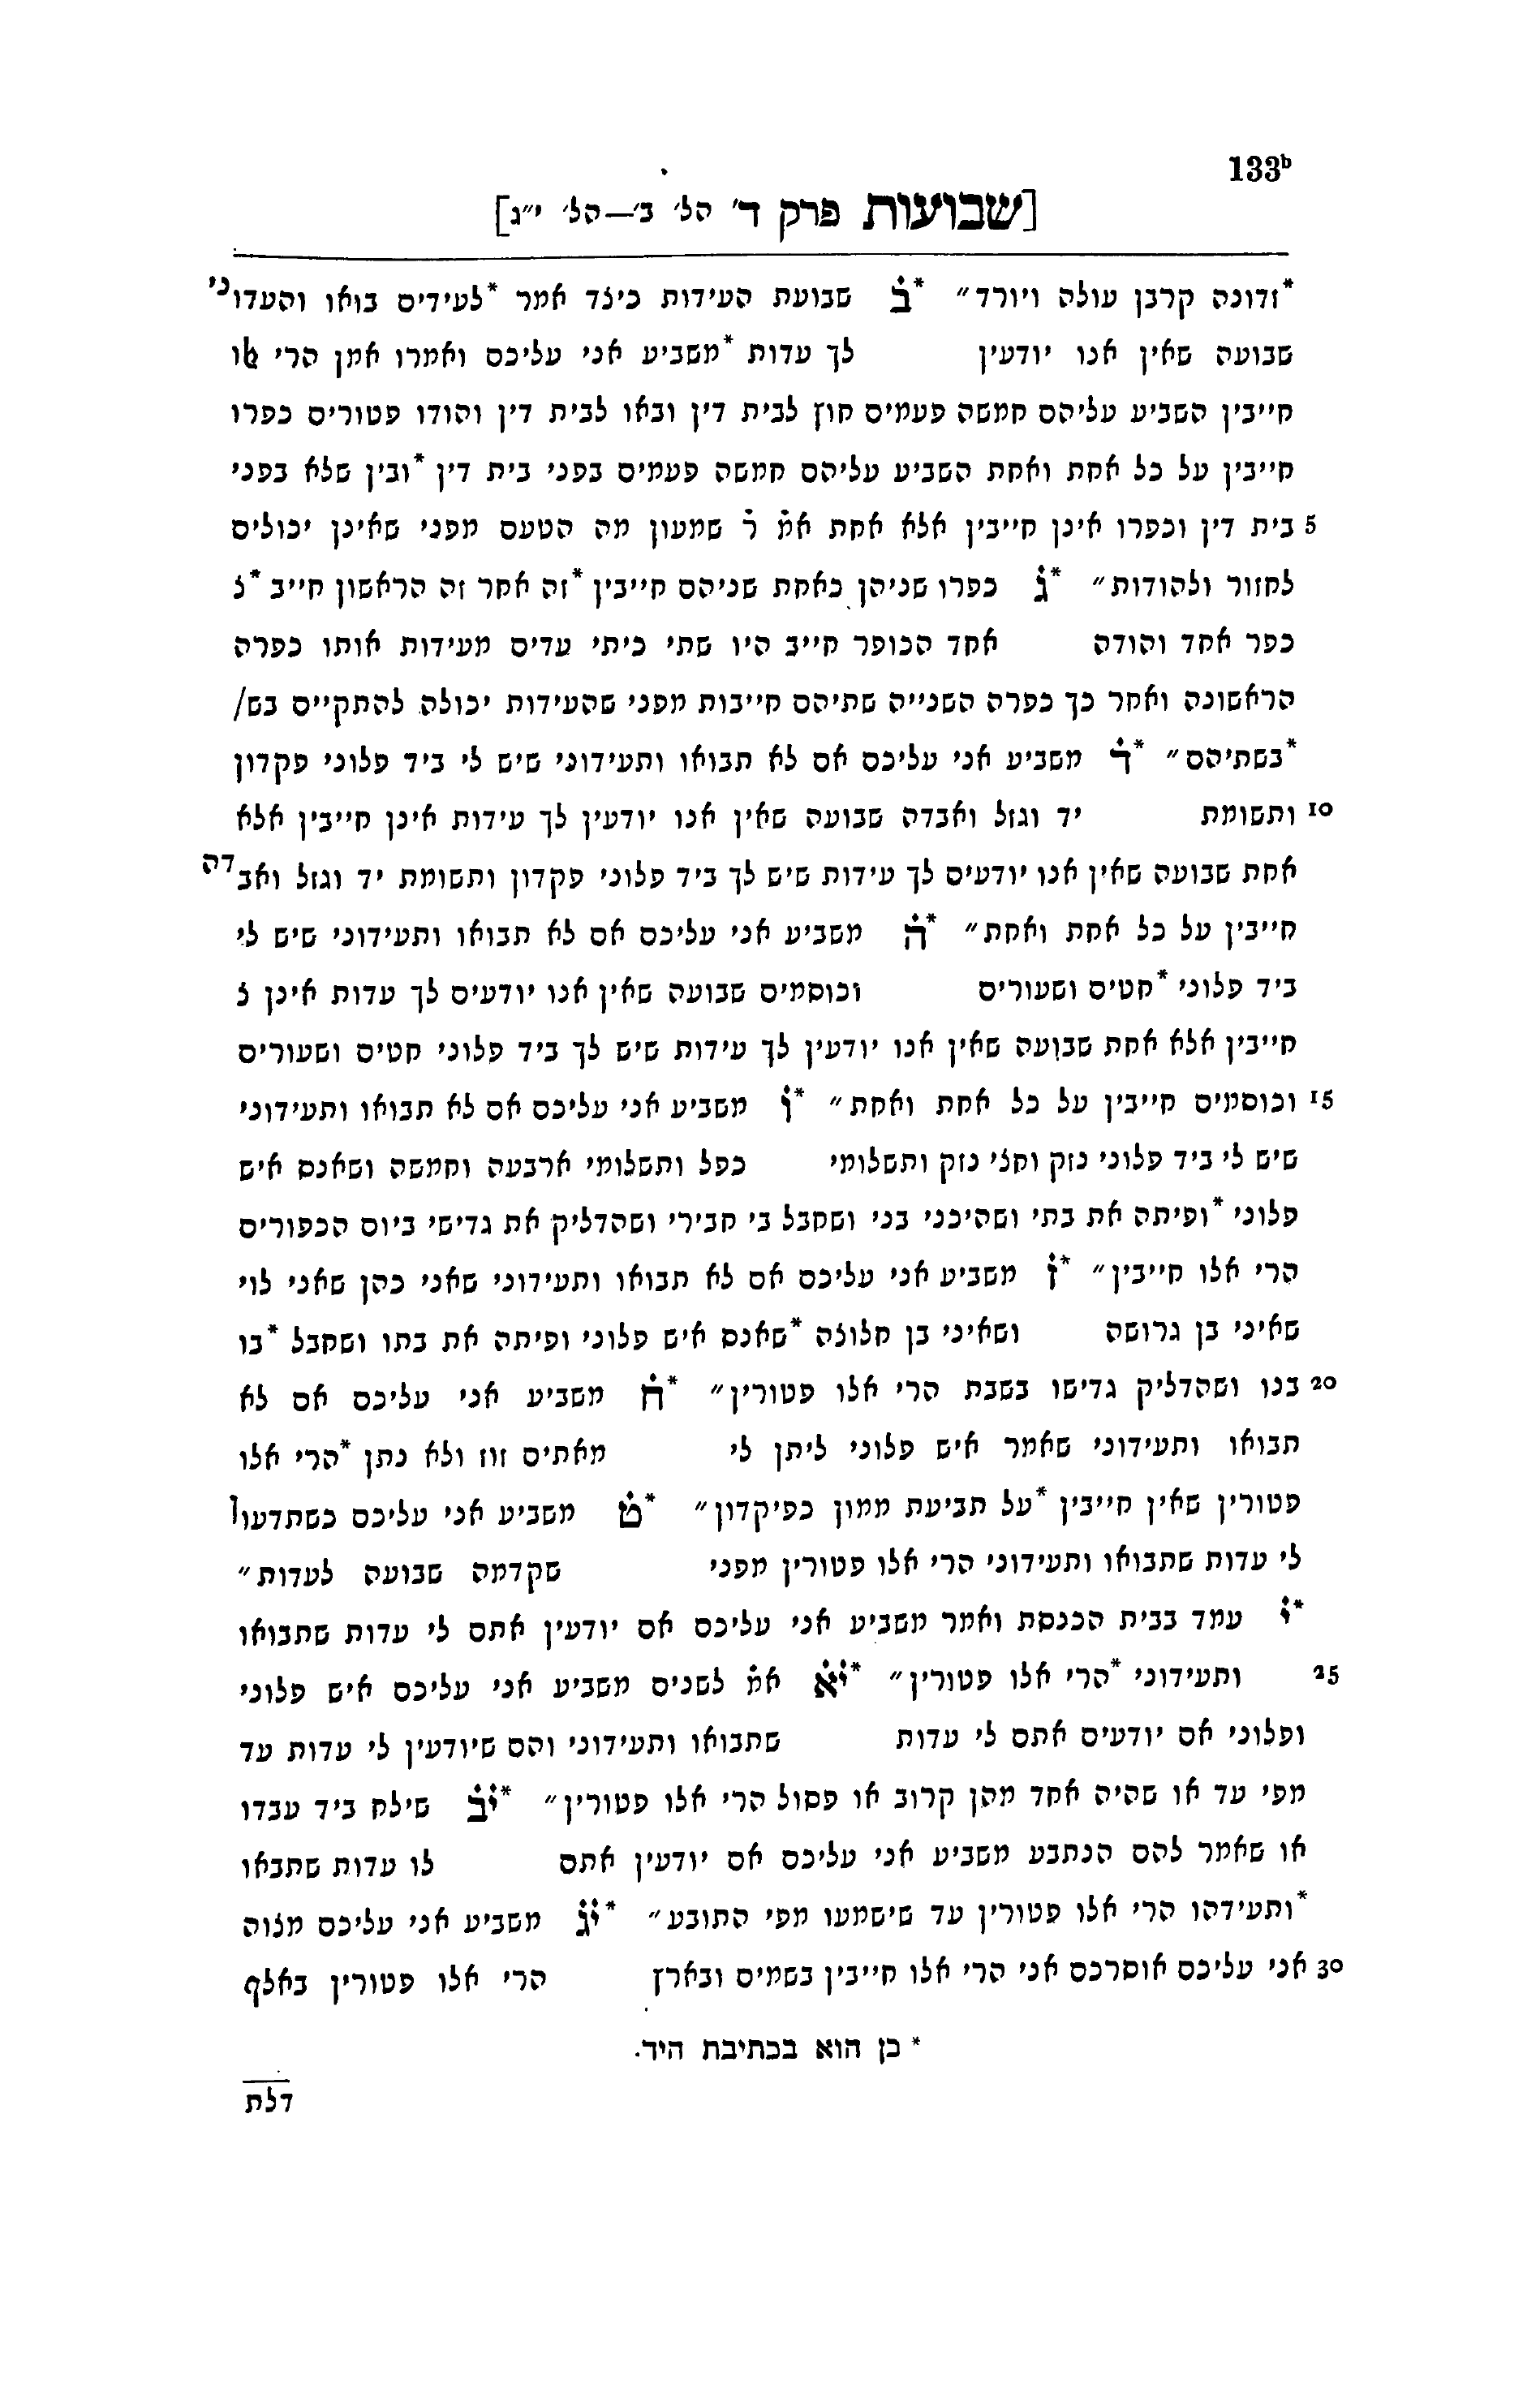 133b
[שבועות פרק ד׳ הל׳ ב׳—הל׳ י״ג]
*זדונה קרבן עולה ויורד״ *ב̇ שבועת העידות כיצד אמר *לעידים בואו והעדוני
שבועה שאין אנו יודעין לך עדות *משביע אני עליכם ואמרו אמן הרי אלו
חייבין השביע עליהם חמשה פעמים חוץ לבית דין ובאו לבית דין והודו פטורים כפרו
חייבין על כל אחת ואחת השביע עליהם חמשה פעמים בפני בית דין *ובין שלא בפני
5 בית דין וכפרו אינן חייבין אלא אחת אמ̇ ר̇ שמעון מה הטעם מפני שאינן יכולים
לחזור ולהודות״ *ג̇ כפרו שניהן כאחת שניהם חייבין *זה אחר זה הראשון חייב *צ
כפר אחד והודה אחד הכופר חייב היו שתי כיתי עדים מעידות אותו כפרה
הראשונה ואחר כך כפרה השנייה שתיהם חייבות מפני שהעידות יכולה להתקיים בש/
*בשתיהם״ *ד̇ משביע אני עליכם אם לא תבואו ותעידוני שיש לי ביד פלוני פקדון
10 ותשומת יד וגזל ואבדה שבועה שאין אנו יודעין לך עידות אינן חייבין אלא
אחת שבועה שאין אנו יודעים לך עידות שיש לך ביד פלוני פקדון ותשומת יד וגזל ואבדה
חייבין על כל אחת ואחת״ *ה̇ משביע אני עליכם אם לא תבואו ותעידוני שיש לי
ביד פלוני *חטים ושעורים וכוסמים שבועה שאין אנו יודעים לך עדות אינן צ
חייבין אלא אחת שבועה שאין אנו יודעין לך עידות שיש לך ביד פלוני חטים ושעורים
15 וכוסמים חייבין על כל אחת ואחת״ *ו̇ משביע אני עליכם אם לא תבואו ותעידוני
שיש לי ביד פלוני נזק וחצי נזק ותשלומי כפל ותשלומי ארבעה וחמשה ושאנס איש
פלוני *ופיתה את בתי ושהיכני בני ושחבל בי חבירי ושהדליק את גדישי ביום הכפורים
הרי אלו חייבין״ *ז̇ משביע אני עליכם אם לא תבואו ותעידוני שאני כהן שאני לוי
שאיני בן גרושה ושאיני בן חלוצה *שאנס איש פלוני ופיתה את בתו ושחבל *בו
20 בנו ושהדליק גדישו בשבת הרי אלו פטורין״ *ח̇ משביע אני עליכם אם לא
תבואו ותעידוני שאמר איש פלוני ליתן לי מאתים זוז ולא נתן *הרי אלו
פטורין שאין חייבין *על תביעת ממון כפיקדון״ *ט̇ משביע אני עליכם כשתדעו
לי עדות שתבואו ותעידוני הרי אלו פטורין מפני שקדמה שבועה לעדות״
*י̇ עמד בבית הכנסת ואמר משביע אני עליכם אם יודעין אתם לי עדות שתבואו
25 ותעידוני *הרי אלו פטורין״ *י̇א̇ אמ̇ לשנים משביע אני עליכם איש פלוני
ופלוני אם יודעים אתם לי עדות שתבואו ותעידוני והם שיודעין לי עדות עד
מפי עד או שהיה אחד מהן קרוב או פסול הרי אלו פטורין״ *י̇ב̇ שילח ביד עבדו
או שאמר להם הנתבע משביע אני עליכם אם יודעין אתם לו עדות שתבאו
*ותעידהו הרי אלו פטורין עד שישמעו מפי התובע״ *י̇ג̇ משביע אני עליכם מצוה
30 אני עליכם אוסרכם אני הרי אלו חייבין בשמים ובארץ הרי אלו פטורין באלף
* כן הוא בכתיבת היד.
דלת